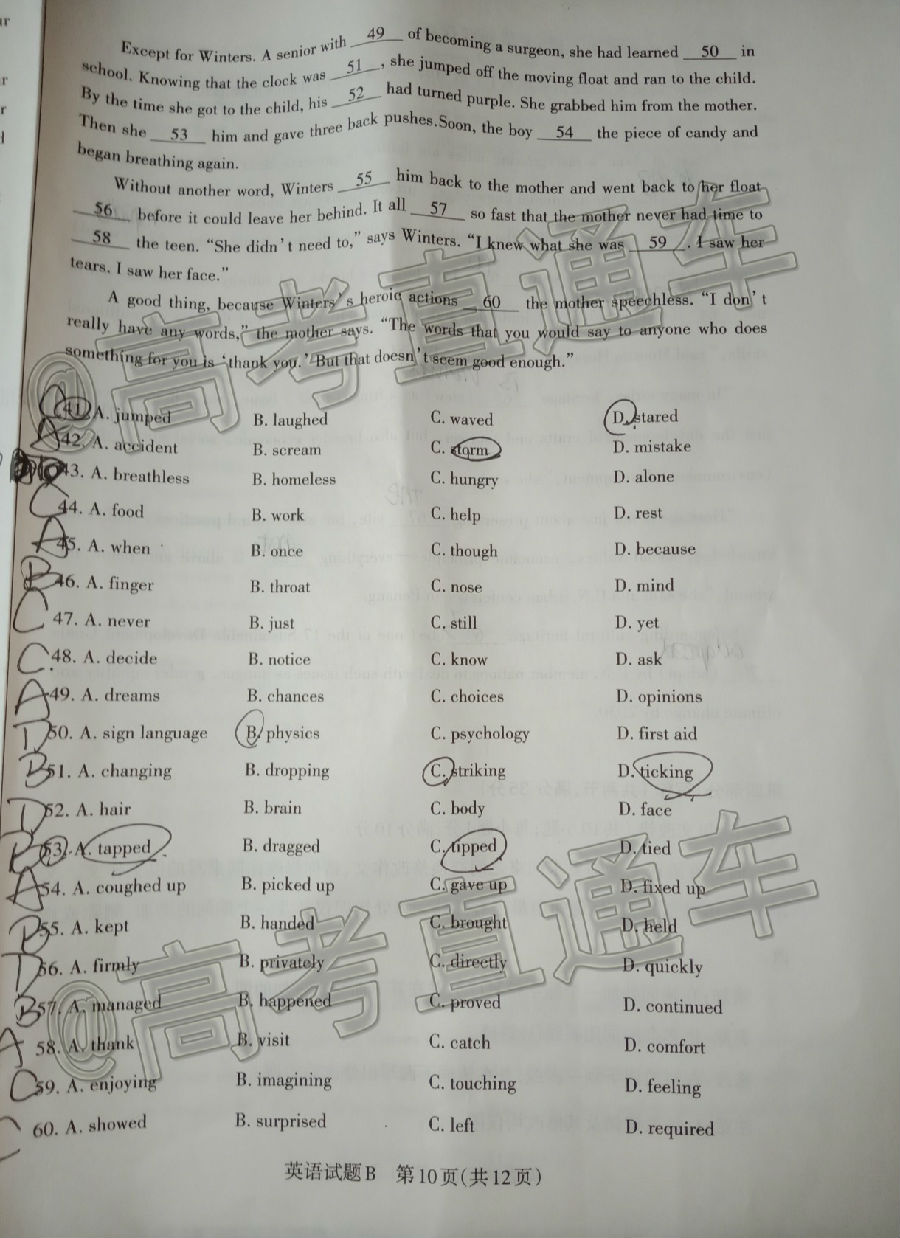 Except for Winters. A senior with 49 of becoming a surgeon, she had learned 50 in
school. Knowing that the clock was 51 , she jumped off the moving float and ran to the child.
By the time she got to the child, his 52 had turned purple. She grabbed him from the mother.
Then she 53 him and gave three back pushes.Soon, the boy 54 the piece of candy and
began breathing again.
Without another word, Winters 55 him back to the mother and went back to her float
56 before it could leave her behind. It all 57 so fast that the mother never had time to
58 the teen. “She didn't need to,” says Winters. “I knew what she was 59 . I saw her
tears. I saw her face.”
A good thing, because Winters's heroic actions 60 the mother speechless. “I don't
really have any words,” the mother says. “The words that you would say to anyone who does
something for you is ‘thank you.’ But that doesn't seem good enough.”
C 41. A. jumped B. laughed C. waved D. stared
A 42. A. accident B. scream C. storm D. mistake
43. A. breathless B. homeless C. hungry D. alone
C 44. A. food B. work C. help D. rest
A 45. A. when B. once C. though D. because
B 46. A. finger B. throat C. nose D. mind
C 47. A. never B. just C. still D. yet
C 48. A. decide B. notice C. know D. ask
A 49. A. dreams B. chances C. choices D. opinions
D 50. A. sign language B. physics C. psychology D. first aid
B 51. A. changing B. dropping C. striking D. ticking
D 52. A. hair B. brain C. body D. face
53. A. tapped B. dragged C. tipped D. tied
A 54. A. coughed up B. picked up C. gave up D. fixed up
B 55. A. kept B. handed C. brought D. held
D 56. A. firmly B. privately C. directly D. quickly
B 57. A. managed B. happened C. proved D. continued
A 58. A. thank B. visit C. catch D. comfort
C 59. A. enjoying B. imagining C. touching D. feeling
C 60. A. showed B. surprised C. left D. required
英语试题B 第10页(共12页)
@高考直通车
@高考直通车